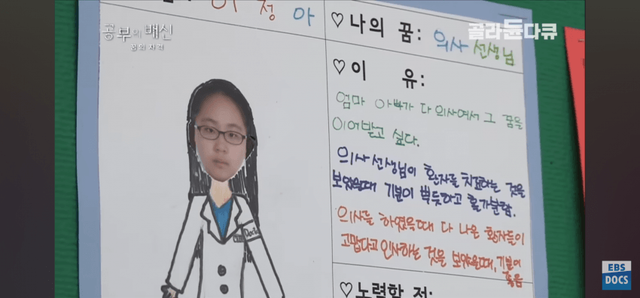 이 정 아
♡ 나의 꿈: 의사 선생님
공부의 배신
골라듄다큐
♡ 이 유:
엄마 아빠가 다 의사여서 그 꿈을
이어받고 싶다.
의사 선생님이 환자를 치료하는 것을
보았을때 기분이 뿌듯하고 홀가분함.
의사를 하였을때 다 나은 환자들이
고맙다고 인사하는 것을 보았을때, 기분이
좋음
♡ 노력할 점:
EBS
DOCS